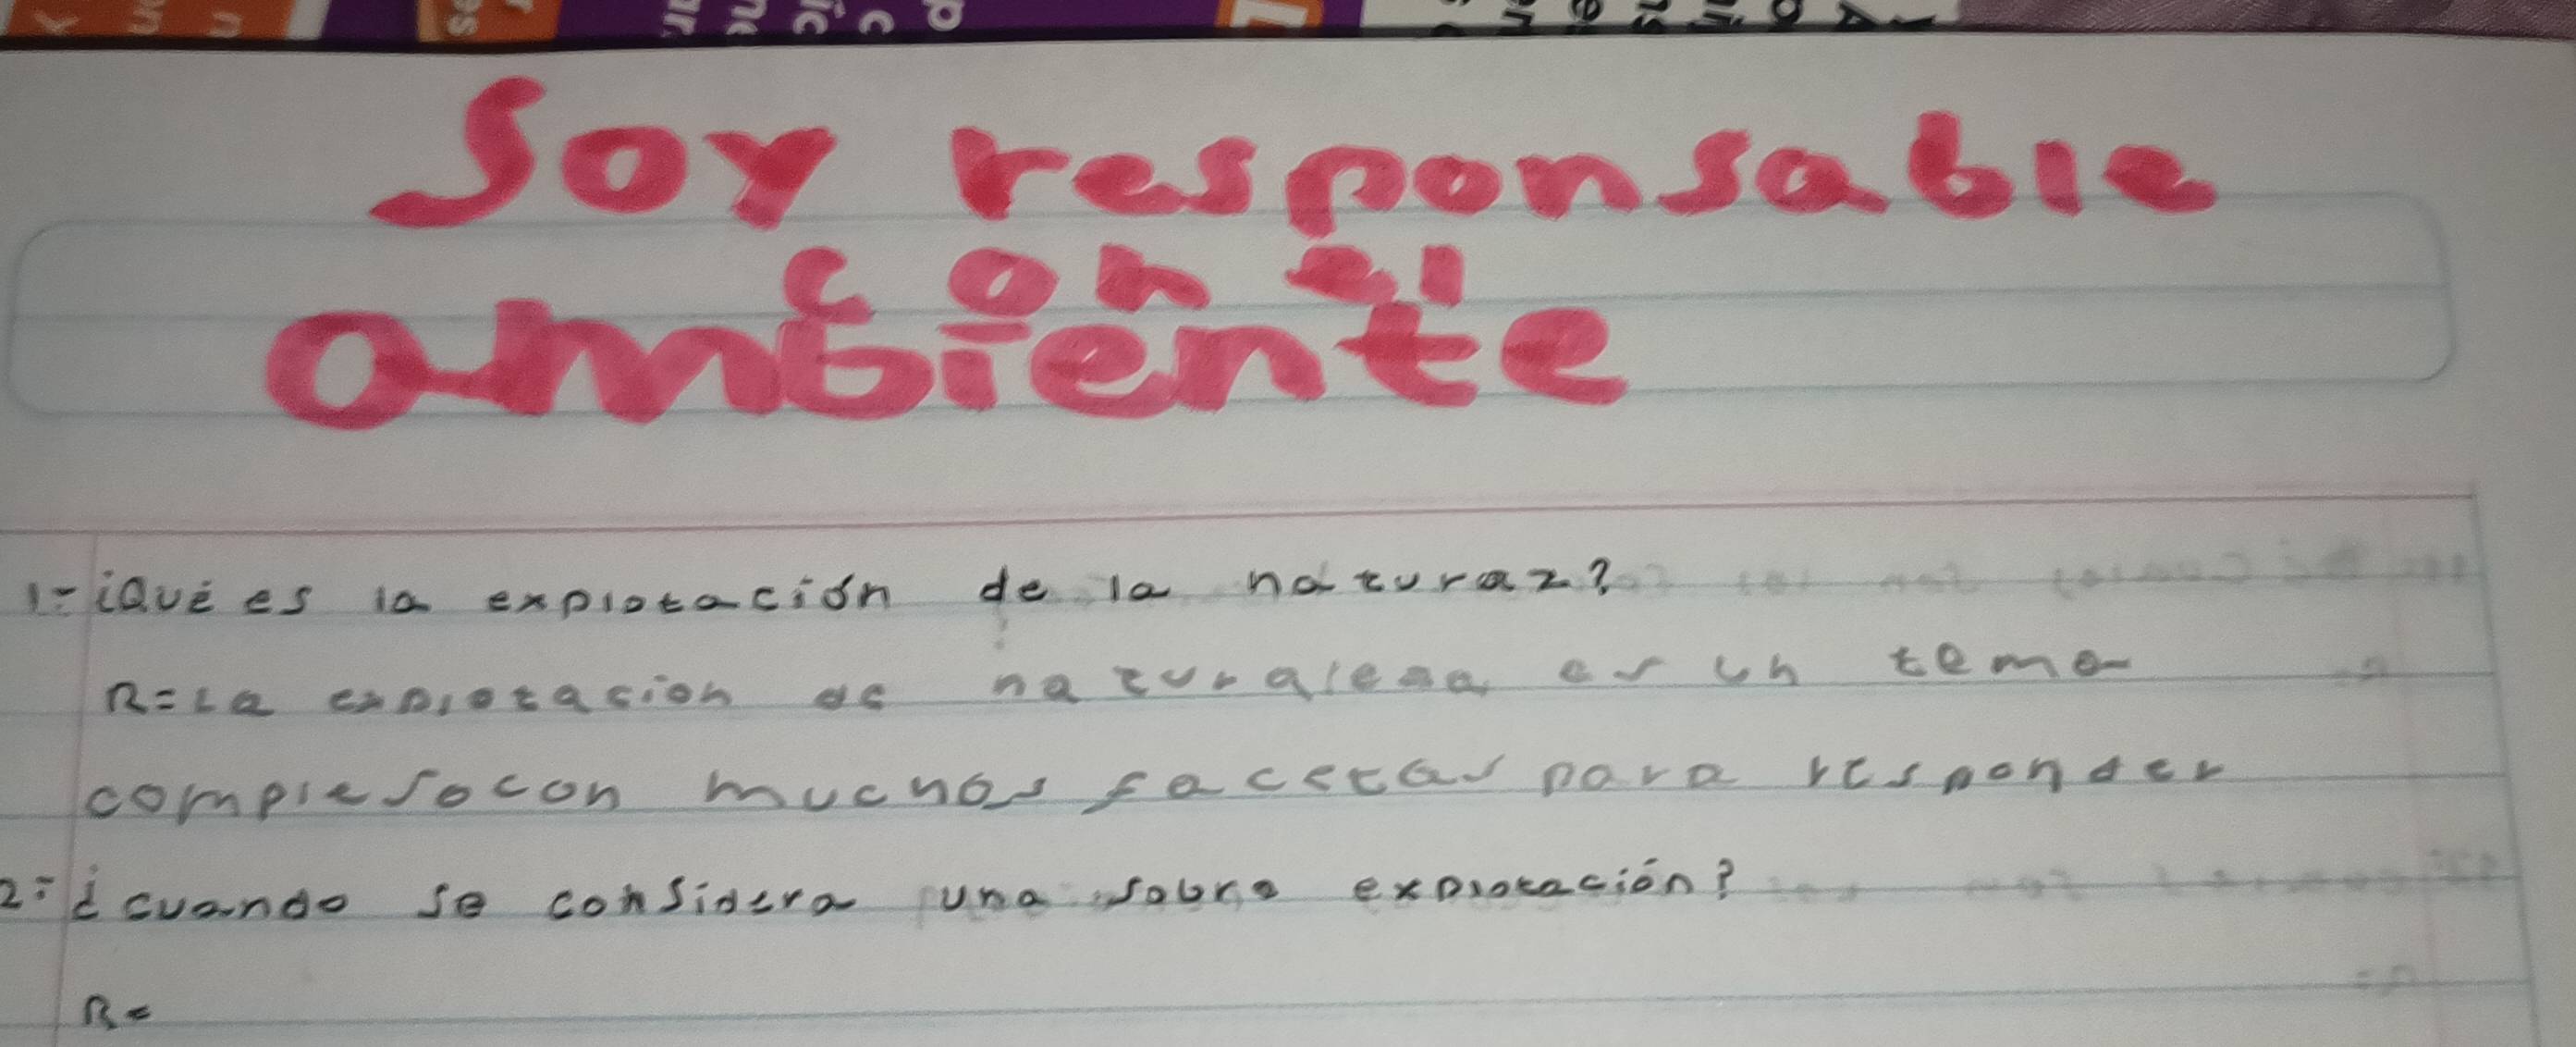 Soy responsable
con el
ambiente
1=¿Qué es la explotación de la naturaz?
R=La explotacion de naturalesa es un tema
complesocon muchas facetas para responder
2=¿cuando se considera una sobre explotación?
R=